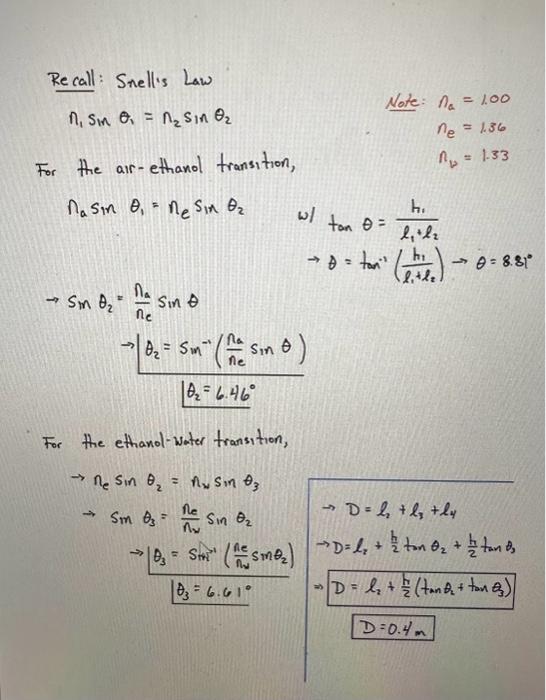 Recall: Snell's Law
n₁ sin θ₁ = n₂ sin θ₂
Note: nₐ = 1.00
nₑ = 1.36
n𝓌 = 1.33
For the air-ethanol transition,
nₐ sin θ₁ = nₑ sin θ₂
w/ tan θ = h₁/(l₁+l₂)
→ θ = tan⁻¹ (h₁/(l₁+l₂)) → θ = 8.81°
→ sin θ₂ = nₐ/nₑ sin θ
→ θ₂ = sin⁻¹ (nₐ/nₑ sin θ)
θ₂ = 6.46°
For the ethanol-water transition,
→ nₑ sin θ₂ = n𝓌 sin θ₃
→ sin θ₃ = nₑ/n𝓌 sin θ₂
→ θ₃ = sin⁻¹ (nₑ/n𝓌 sin θ₂)
θ₃ = 6.61°
→ D = l₂ + l₃ + l₄
→ D = l₂ + h/2 tan θ₂ + h/2 tan θ₃
⇒ D = l₂ + h/2 (tan θ₂ + tan θ₃)
D = 0.4 m